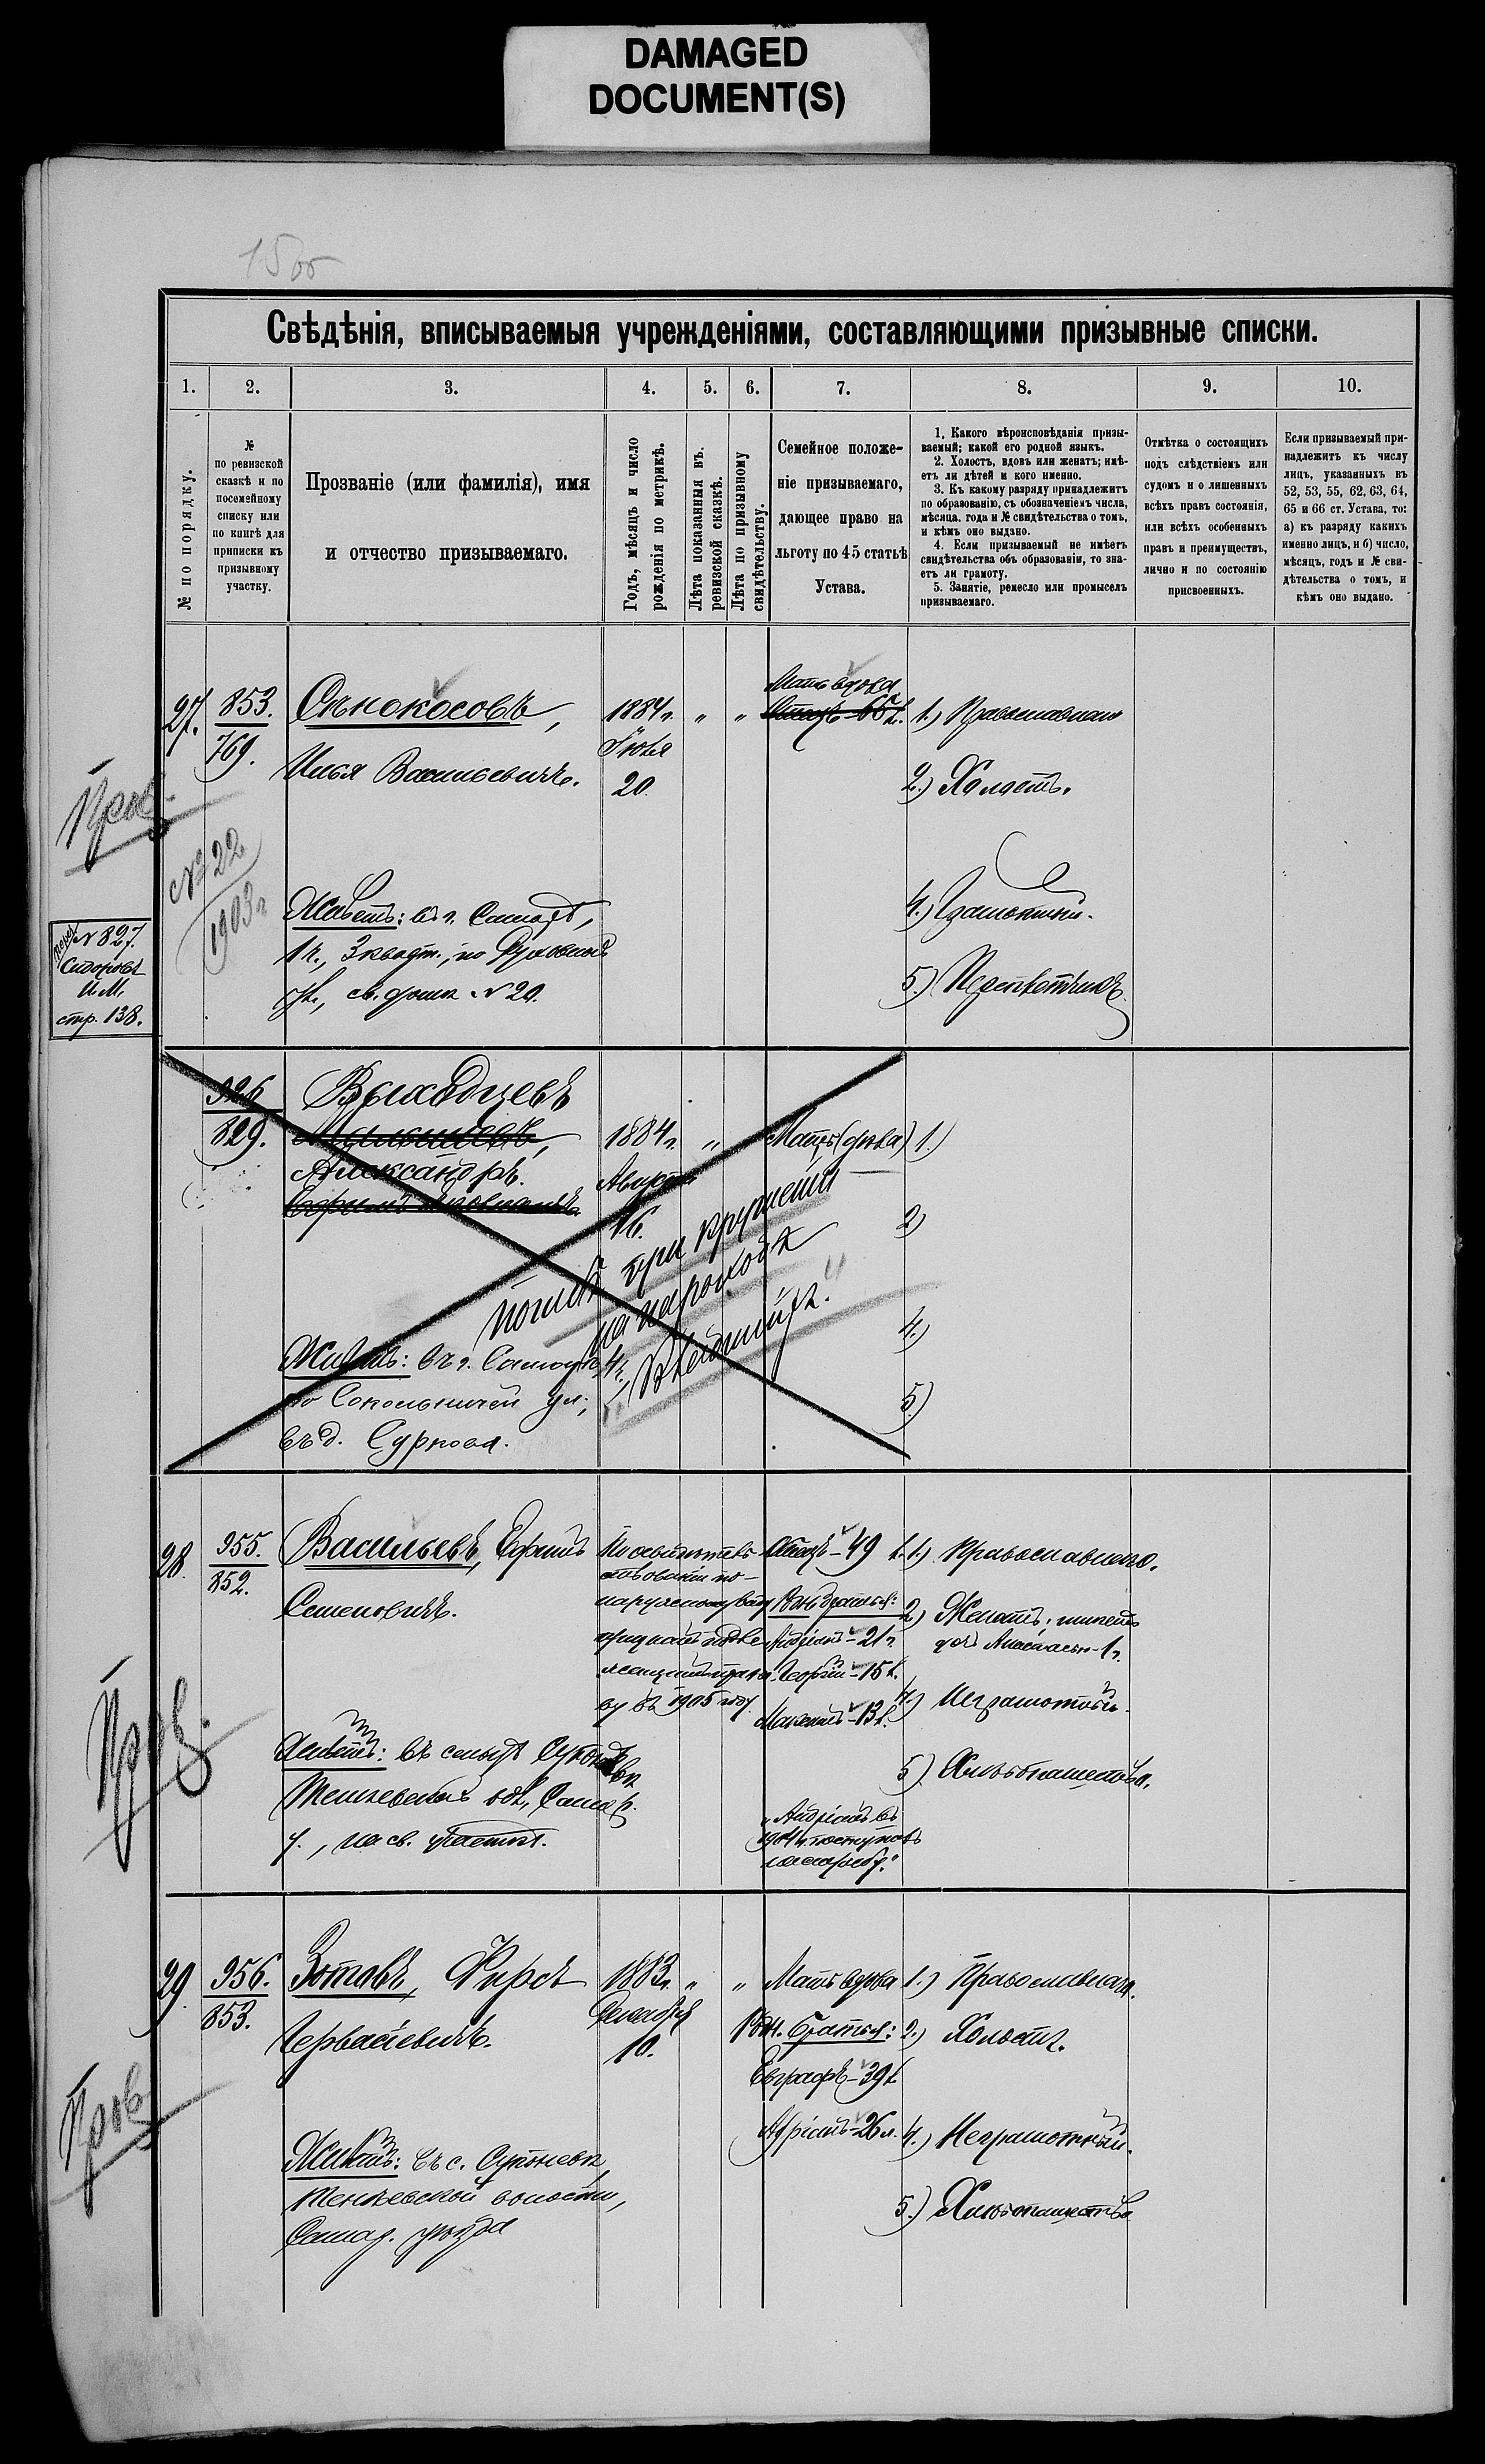 DAMAGED
DOCUMENT(S)
15 об
Свѣдѣнія, вписываемыя учрежденіями, составляющими призывные списки.
1. 2. 3. 4. 5. 6. 7. 8. 9. 10.
№ по порядку.
№
по ревизской
сказкѣ и по
посемейному
списку или
по книгѣ для
приписки къ
призывному
участку.
Прозваніе (или фамилія), имя
и отчество призываемаго.
Годъ, мѣсяцъ и число
рожденія по метрикѣ.
Лѣта показанныя въ
ревизской сказкѣ.
Лѣта по призывному
свидѣтельству.
Семейное положе-
ніе призываемаго,
дающее право на
льготу по 45 статьѣ
Устава.
1. Какого вѣроисповѣданія призы-
ваемый; какой его родной языкъ.
2. Холостъ, вдовъ или женатъ; имѣ-
етъ ли дѣтей и кого именно.
3. Къ какому разряду принадлежитъ
по образованію, съ обозначеніемъ числа,
мѣсяца, года и № свидѣтельства о томъ,
и кѣмъ оно выдано.
4. Если призываемый не имѣетъ
свидѣтельства объ образованіи, то зна-
етъ ли грамоту.
5. Занятіе, ремесло или промыселъ
призываемаго.
Отмѣтка о состоящихъ
подъ слѣдствіемъ или
судомъ и о лишенныхъ
всѣхъ правъ состоянія,
или всѣхъ особенныхъ
правъ и преимуществъ,
лично и по состоянію
присвоенныхъ.
Если призываемый при-
надлежитъ къ числу
лицъ, указанныхъ въ
52, 53, 55, 62, 63, 64,
65 и 66 ст. Устава, то:
а) къ разряду какихъ
именно лицъ, и б) число,
мѣсяцъ, годъ и № сви-
дѣтельства о томъ, и
кѣмъ оно выдано.
27.
853.
769.
Сѣнокосовъ,
Илья Васильевичъ.
1884 г.
Іюля
20.
" "
Мать вдова
Отецъ 65 л.
1.) Православнаго
2.) Холостъ.
4.) Грамотный.
5.)
Пров.
№ 22
1903 г
Живетъ: въ г. Самарѣ,
1 ч., 3 кварт., по Духовной
ул., св. домъ № 20.
№ 827.
Сидоровъ
И. М.
стр. 138.
926
829.
Выходцевъ
Александръ.
1884 г.
Августа
16.
"
Мать (дѣва)
1.)
2)
4.)
5.)
погибъ при крушеніи
на пароходѣ
Живетъ: въ г. Самарѣ, 4 ч.,
по Сокольничей ул.,
въ д. Суркова.
28.
955.
852.
Васильевъ, Ефимъ
Семеновичъ.
По освидѣтель-
ствованіи по
наружному виду
признанъ подле-
жащимъ призы-
ву въ 1905 году.
Отецъ – 49 л.
Родн. братья:
Андріанъ – 21 г.
Георгій – 15 л.
Максимъ – 13 л.
"Андріанъ въ
1904 г. поступилъ
на службу."
1.) Православнаго.
2.) Женатъ, имѣетъ
дочь Анастасью – 1 г.
4.) Неграмотный.
5.) Хлѣбопашество.
Пров.
Живетъ: въ сельцѣ
волъ, Самар.
у., на св. участкѣ.
29.
956.
853.
Зотовъ, Фирсъ
Гервасіевичъ.
1883 г.
Декабря
10.
" "
Мать вдова
Родн. братья:
Евграфъ – 39 л.
Адріанъ – 26 л.
1.) Православнаго.
2.) Холостъ.
4.) Неграмотный.
5.) Хлѣбопашество
Пров
Живетъ: въ с.
волости,
Самар. уѣзда